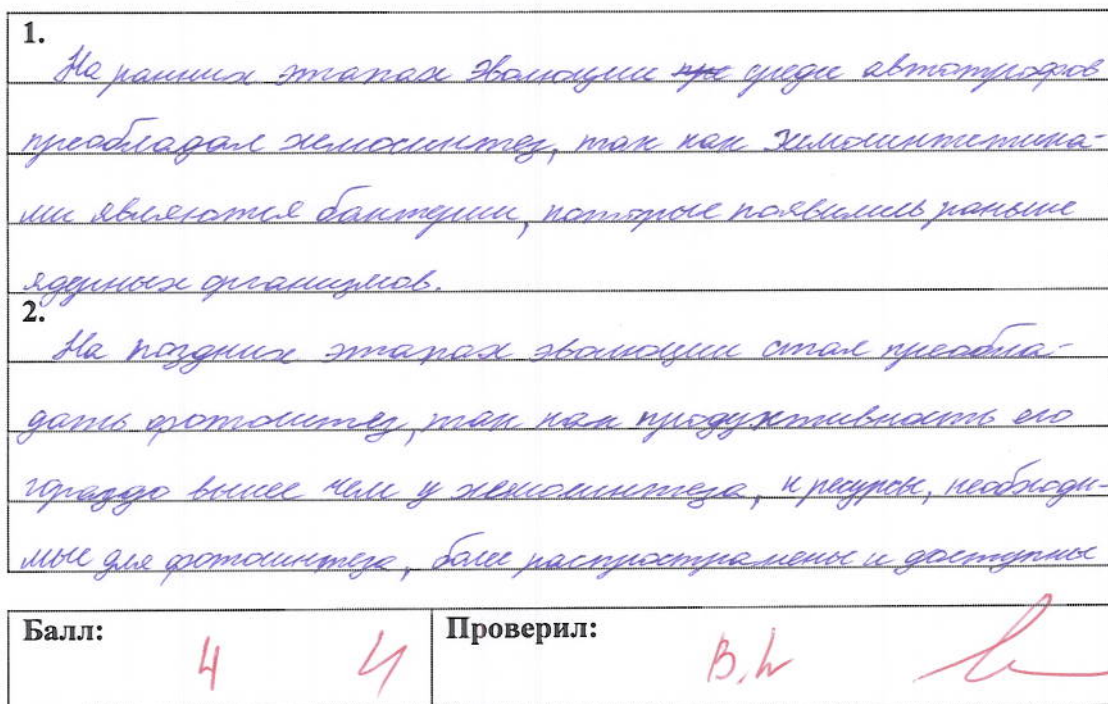 1.
На ранних этапах эволюции среди автотрофов
преобладал хемосинтез, так как хемосинтетика-
ми являются бактерии, которые появились раньше
ядерных организмов.
2.
На поздних этапах эволюции стал преобла-
дать фотосинтез, так как продуктивность его
гораздо выше чем у хемосинтеза, и ресурсы, необходи-
мые для фотосинтеза, более распространены и доступны
Балл: 4 4 Проверил: